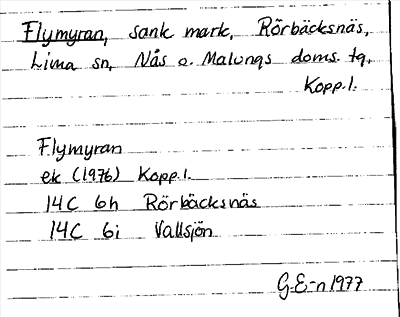 Flymyran, sank mark, Rörbäcksnäs,
Lima sn, Nås o. Malungs doms. tg,
Kopp. l.
Flymyran
ek (1976) Kopp. l.
14C 6h Rörbäcksnäs
14C 6i Vallsjön
G.E-n 1977